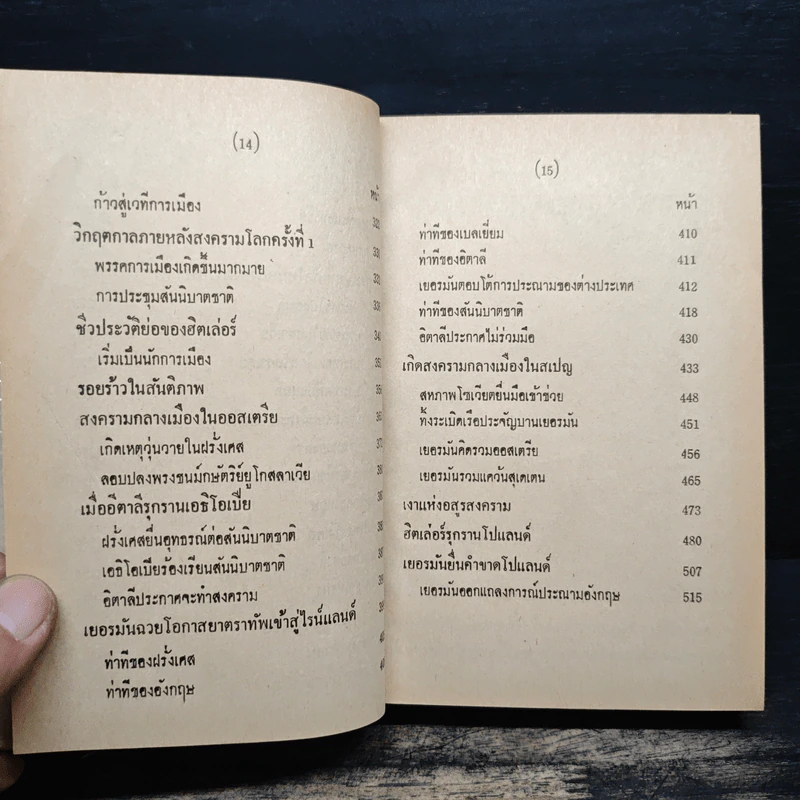 (14)
หน้า
ก้าวสู่เวทีการเมือง
วิกฤตกาลภายหลังสงครามโลกครั้งที่ 1
พรรคการเมืองเกิดขึ้นมากมาย
การประชุมสันนิบาตชาติ
ชีวประวัติย่อของฮิตเล่อร์
เริ่มเป็นนักการเมือง
รอยร้าวในสันติภาพ
สงครามกลางเมืองในออสเตรีย
เกิดเหตุวุ่นวายในฝรั่งเศส
ลอบปลงพระชนม์กษัตริย์ยูโกสลาเวีย
เมื่ออิตาลีรุกรานเอธิโอเปีย
ฝรั่งเศสยื่นอุทธรณ์ต่อสันนิบาตชาติ
เอธิโอเปียร้องเรียนสันนิบาตชาติ
อิตาลีประกาศจะทำสงคราม
เยอรมันฉวยโอกาสยาตราทัพเข้าสู่ไรน์แลนด์
ท่าทีของฝรั่งเศส
ท่าทีของอังกฤษ
(15)
หน้า
ท่าทีของเบลเยี่ยม 410
ท่าทีของอิตาลี 411
เยอรมันตอบโต้การประณามของต่างประเทศ 412
ท่าทีของสันนิบาตชาติ 418
อิตาลีประกาศไม่ร่วมมือ 430
เกิดสงครามกลางเมืองในสเปญ 433
สหภาพโซเวียตยื่นมือเข้าช่วย 448
ทิ้งระเบิดเรือประจัญบานเยอรมัน 451
เยอรมันคิดรวมออสเตรีย 456
เยอรมันรวมแคว้นสุเดเตน 465
เงาแห่งอสูรสงคราม 473
ฮิตเล่อร์รุกรานโปแลนด์ 480
เยอรมันยื่นคำขาดโปแลนด์ 507
เยอรมันออกแถลงการณ์ประณามอังกฤษ 515